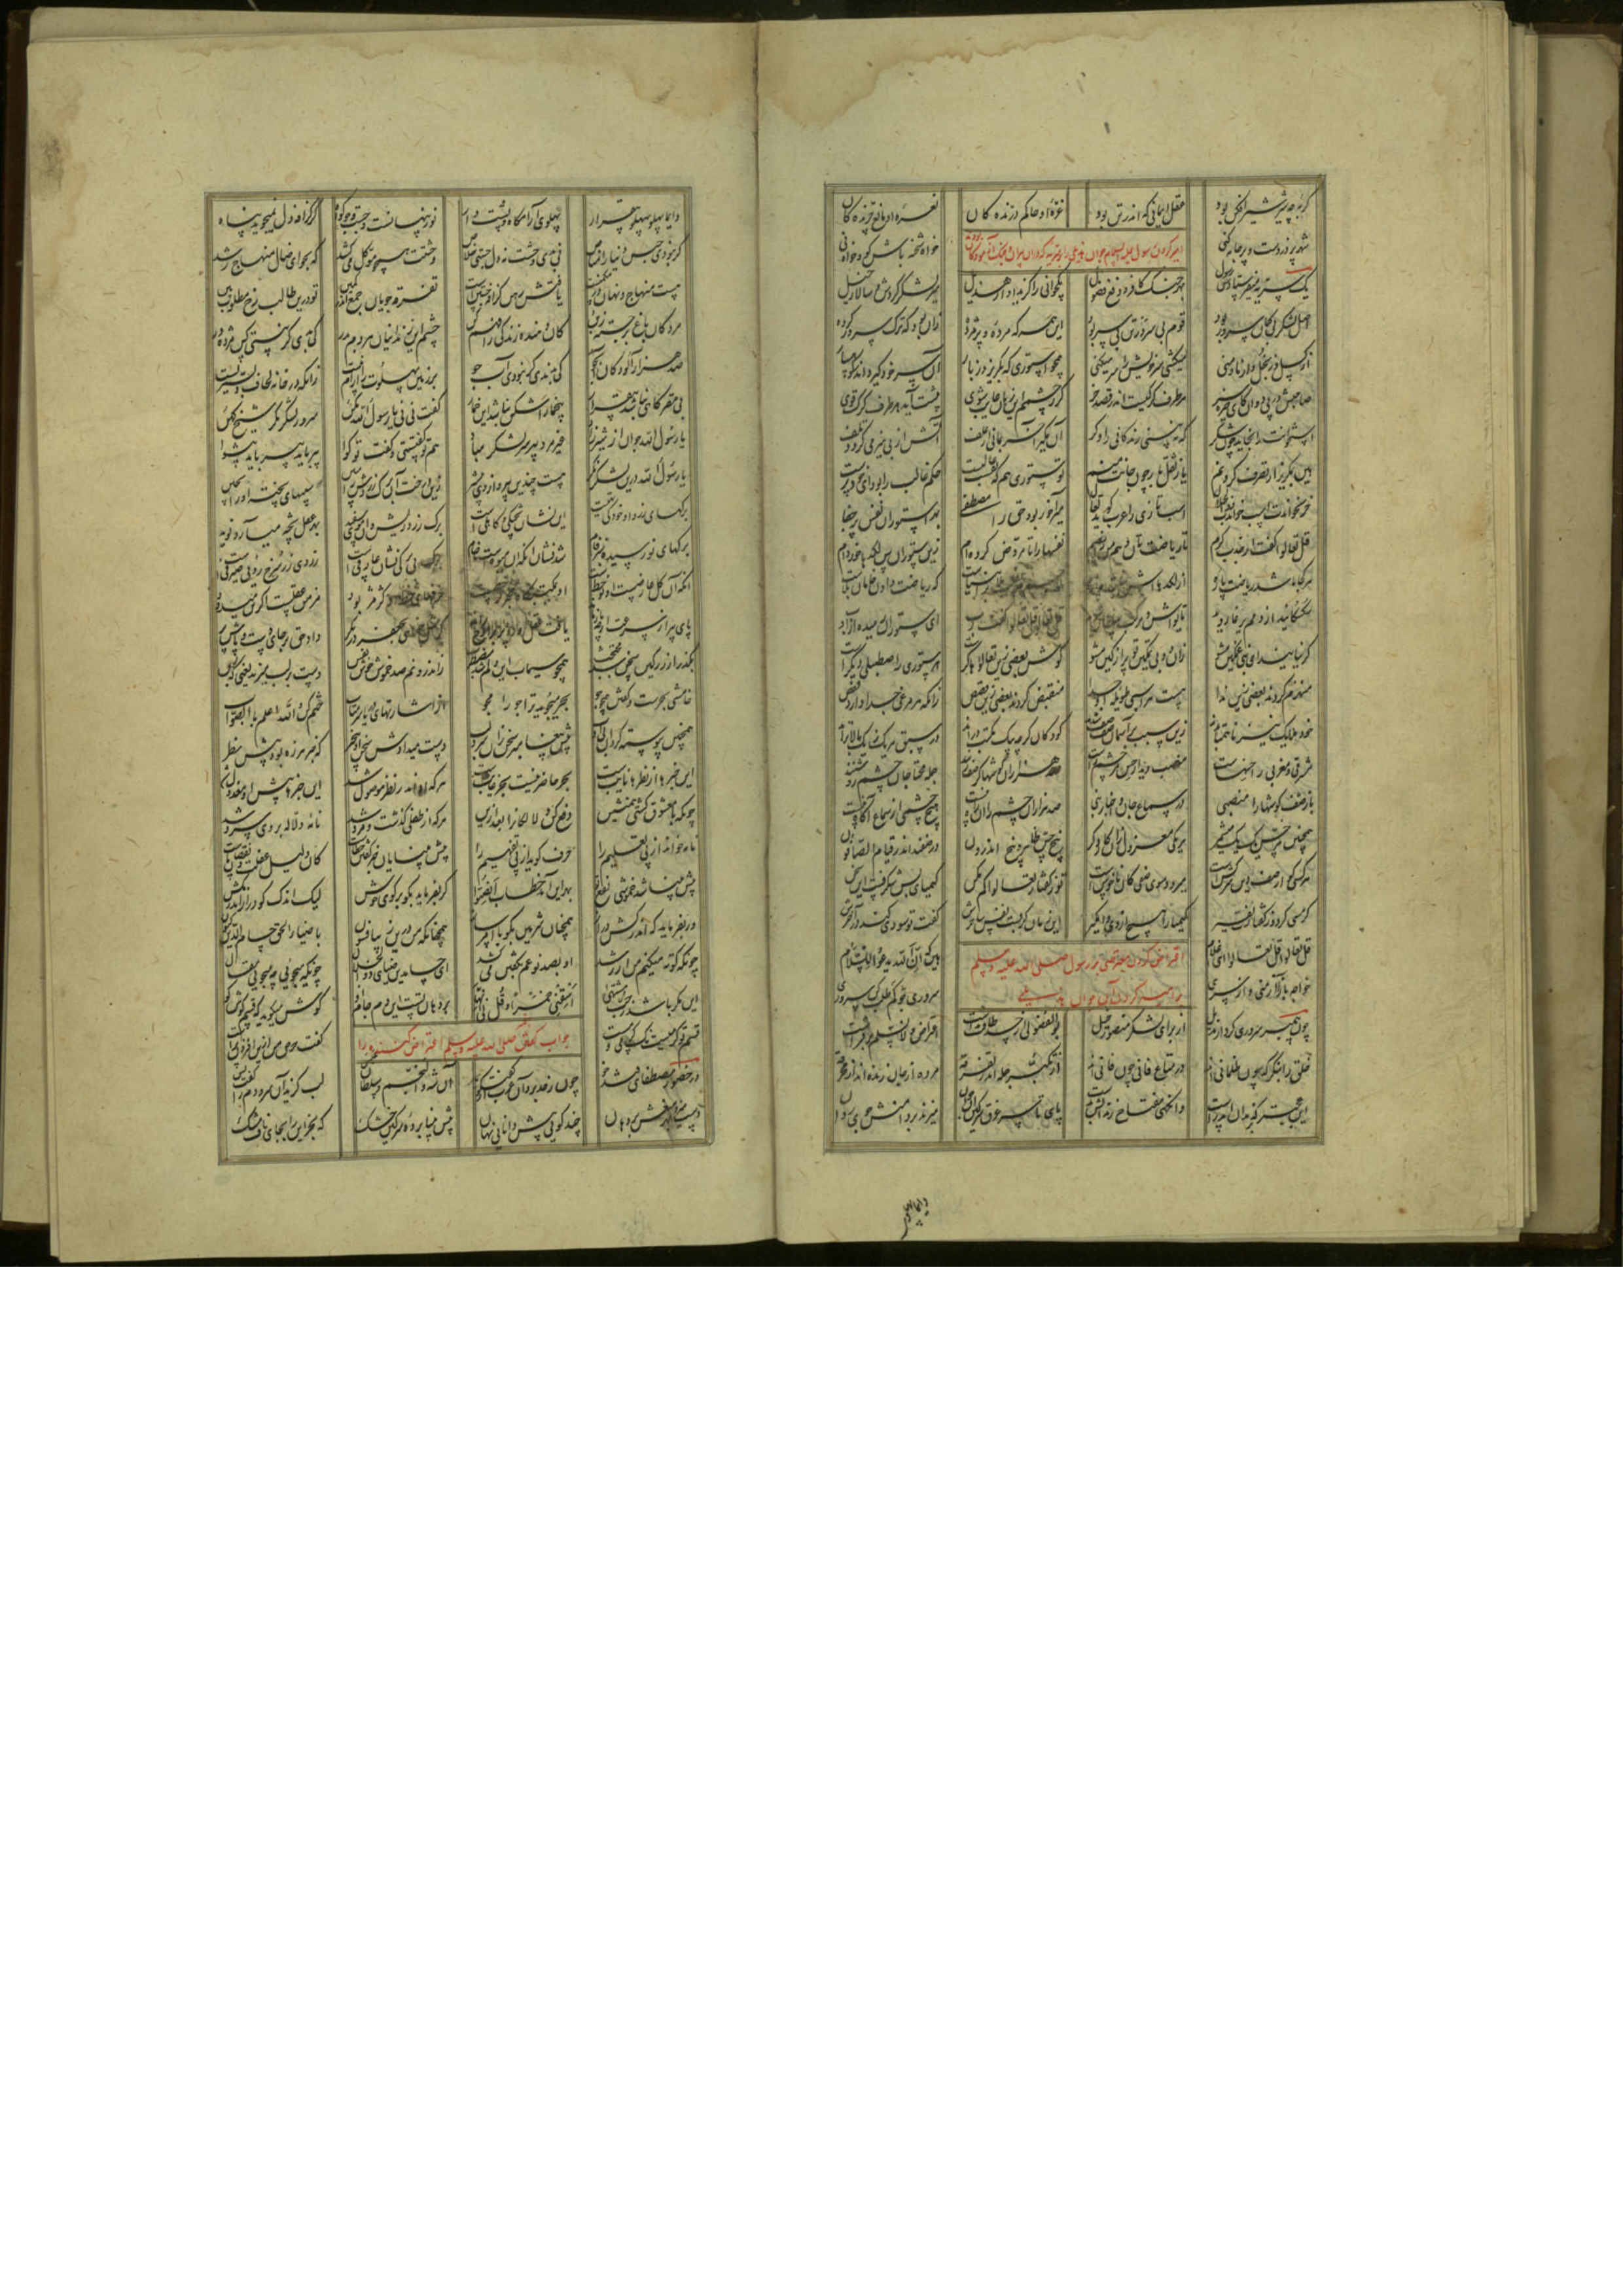 گربه چه شیر شیرافکن بود عقل ایمانی که اندر تن بود غره او حاکم درندگان نعره او مانع چرندگان
شهر پر دزدست و پر جامه کنی خواه شحنه باش گو و خواه نی
امیر کردن رسول علیه السلام جوان هذیلی را بر سریه که دران پیران و جنگ آزمودگان بودند
یک سریه میفرستاد رسول بهر جنگ کافر و دفع فضول یک جوانی را گزید او از هذیل میر لشکر کردش و سالار خیل
اصل لشکر بی گمان سرور بود قوم بی سرور تن بی سر بود این همه که مرده و پژمرده زان بود که ترک سرور کرده
از کسل وز بخل وز ما و منی میکشی سر خویش را سر میکنی همچو استوری که بگریزد ز بار آن سر خود گیرد اندر کوهسار
صاحبش در پی دوان کای خیره سر هر طرف گرگیست اندر قصد خر گر ز چشمم این زمان غایب شوی پیشت آید هر طرف گرگ قوی
استخوانت را بخاید چون شکر که نبینی زندگانی را دگر آن مگیر آخر بمانی از علف آتش از بی هیزمی گردد تلف
هین بمگریز از تصرف کردنم یا ز ثقل بار چون جانت منم تو ستوری هم که نفست غالبست حکم غالب را بود ای خود پرست
خر نخواندت اسب خواندت ذوالجلال اسب تازی را عرب گوید تعال میر آخور بود حق را مصطفی بهر استوران نفس پر جفا
قل تعالوا گفت از جذب کرم تا ریاضتتان دهم من رایضم نفسها را تا مروض کرده ام زین ستوران بس لگدها خورده ام
هر کجا باشد ریاضت باره از لگدهااش نباشد چاره که ریاضت دادن خامان بلاست
سکسکانید از دمم یرغا روید تا یواش و مرکب سلطان شوید قل تعالوا قل تعالوا گفت رب ای ستوران رمیده از ادب
گر نیایند ای نبی غمگین مشو زان دو بی تمکین تو پر از کین مشو گوش بعضی زین تعالوها کرست هر ستوری را صطبلی دیگرست
منهزم گردند بعضی زین ندا هست هر اسپی طویله او جدا منقبض گردند بعضی زین قصص زانکه هر مرغی جدا دارد قفص
خود ملایک نیز ناهمتا بدند زین سبب بر آسمان صف صف شدند کودکان گرچه بیک مکتب درند در سبق هر یک ز یک بالاترند
مشرقی و مغربی را حسهاست منصب دیدار حس چشم راست صد هزاران گوشها گر صف زنند جمله محتاجان چشم روشنند
باز صف گوشها را منصبی در سماع جان و اخبار نبی صد هزاران چشم را آن راه نیست هیچ چشمی از سماع آگاه نیست
همچنین هر حس یک یک میشمر هر یکی معزول از آن کار دگر پنج حس ظاهر و پنج اندرون در صف اند اندر قیام الصافون
هر کسی کو از صف دین سرکشست میرود سوی صفی کان ناخوش است تو ز گفتار تعالوا کم مکن کیمیای بس شگرفست این سخن
گر مسی گردد ز گفتارت نفیر کیمیا را هیچ از وی وامگیر این زمان گر بست نفس ساحرش گفت تو سودش کند در آخرش
قل تعالوا قل تعالوا ای غلام هین که ان الله یدعوا للسلام
خواجه باز آ از منی و از سری سروری جو کم طلب کن سروری
اعتراض کردن معترضی بر رسول صلی الله علیه و سلم
بر امیر کردن آن جوان هذیلی
چون پیمبر سروری کرد از هذیل از برای لشکر منصور خیل بوالفضولی از حسد طاقت نداشت اعتراض و لانسلم بر فراشت
خلق را بنگر که چون ظلمانی اند در متاع فانی چون فانی اند از تکبر جمله اندر تفرقه مرده از جان زنده اند از مخرقه
این عجب که جان بزندان اندرست وانگهی مفتاح زندانش بدست پای تا سر غرق سرگین آن جوان میزند بر دامنش جوی روان
دایما پهلو
دایما پهلو بپهلو بی قرار پهلوی آرامگاه و پشت دار نور پنهانست و جست و جو گواه کز گزافه دل نمیجوید پناه
گر نبودی حبس دنیا را مناص نی بدی وحشت نه دل جستی خلاص وحشتت همچو موکل می کشد که بجو ای ضال منهاج رشد
هست منهاج و نهان در مکمنست یافتش رهن گزافه جستنست تفرقه جویان جمع اندر کمین تو درین طالب رخ مطلوب بین
مردگان باغ برجسته ز بن کان دهنده زندگی را فهم کن چشم این زندانیان هر دم بدر کی بدی گر نیستی کس مژده ور
صد هزار آلودگان آب جو کی بدندی گر نبودی آب جو بر زمین پهلوت را آرام نیست زانکه در خانه لحاف و بستریست
بی مقرگاهی نباشد بی قرار بی خمار اشکن نباشد این خمار گفت نی نی یا رسول الله مکن سرور لشکر مگر شیخ کهن
یا رسول الله جوان ار شیرزاد غیر مرد پیر سر لشکر مباد هم تو گفتستی و گفت تو گوا پیر باید پیر باید پیشوا
یا رسول الله درین لشکر نگر هست چندین پیر و از وی پیشتر زین درخت آن برگ زردش را مبین سیبهای پخته او را بچین
برگهای زرد او خود کی تهیست این نشان پختگی و کاملیست برگ زرد ریش و آن موی سپید بهر عقل پخته میآرد نوید
برگهای نو رسیده سبز فام شد نشان آنکه آن میوه ست خام برگ بی برگی نشان عارفیست زردی زر سرخ رویی صیرفیست
آنکه او گل عارضست ار نو خطست او بمکتب گاه مخبر نو خطست حرفهای خط او کژ مژ بود مزمن عقلست اگر تن میدود
پای پیر از سرعت ار چه باز ماند یافت عقل او دو پر بر اوج راند گر مثل خواهی بجعفر در نگر داد حق بر جای دست و پاش پر
بگذر از زر کین سخن شد محتجب همچو سیماب این دلم شد مضطرب ز اندرونم صد خموش خوش نفس دست بر لب میزند یعنی که بس
خامشی بحرست و گفتن همچو جو بحر میجوید ترا جو را مجو از اشارتهای دریا سر متاب ختم کن والله اعلم بالصواب
همچنین پیوسته کرد آن بی ادب پیش پیغامبر سخن زان سرد لب دست میدادش سخن او بیخبر که خبر هرزه بود پیش نظر
این خبرها از نظرها نایبست بهر حاضر نیست بهر غایبست هر که او اندر نظر موصول شد این خبرها پیش او معزول شد
چونکه با معشوق گشتی همنشین دفع کن دلالگان را بعد ازین هر که از طفلی گذشت و مرد شد نامه و دلاله بر وی سرد شد
نامه خواند از پی تعلیم را حرف گوید از پی تفهیم را پیش بینایان خبر گفتن خطاست کان دلیل غفلت و نقصان ماست
پیش بینا شد خموشی نفع تو بهر این آمد خطاب انصتوا گر بفرماید بگو بر گوی خوش لیک اندک گو دراز اندر مکش
ور بفرماید که اندر کش دراز همچنان شرمین بگو با امر ساز همچنانکه من درین زیبا فسون با ضیاء الحق حسام الدین کنون
چونکه کوته میکنم من از رشد او بصد نوعم بگفتن می کشد ای حسام الدین ضیای ذوالجلال چونکه میبینی چه میجویی مقال
این مگر باشد ز حب مشتهی اسقنی خمرا و قل لی انها بر دهان تست این دم جام او گوش میگوید که قسم گوش کو
قسم تو گرمیست نک گرمی و مست گفت حرص من ازین افزونترست
جواب گفتن صلی الله علیه و سلم اعتراض کننده را
در حضور مصطفای قند خو چون ز حد برد آن عرب از گفت و گو آن شه والنجم و سلطان عبس لب گزید آن سرد دم را گفت بس
دست میزد بهر منعش بر دهان چند گویی پیش دانای نهان پیش بینا برده سرگین خشک که بخر این را بجای ناف مشک